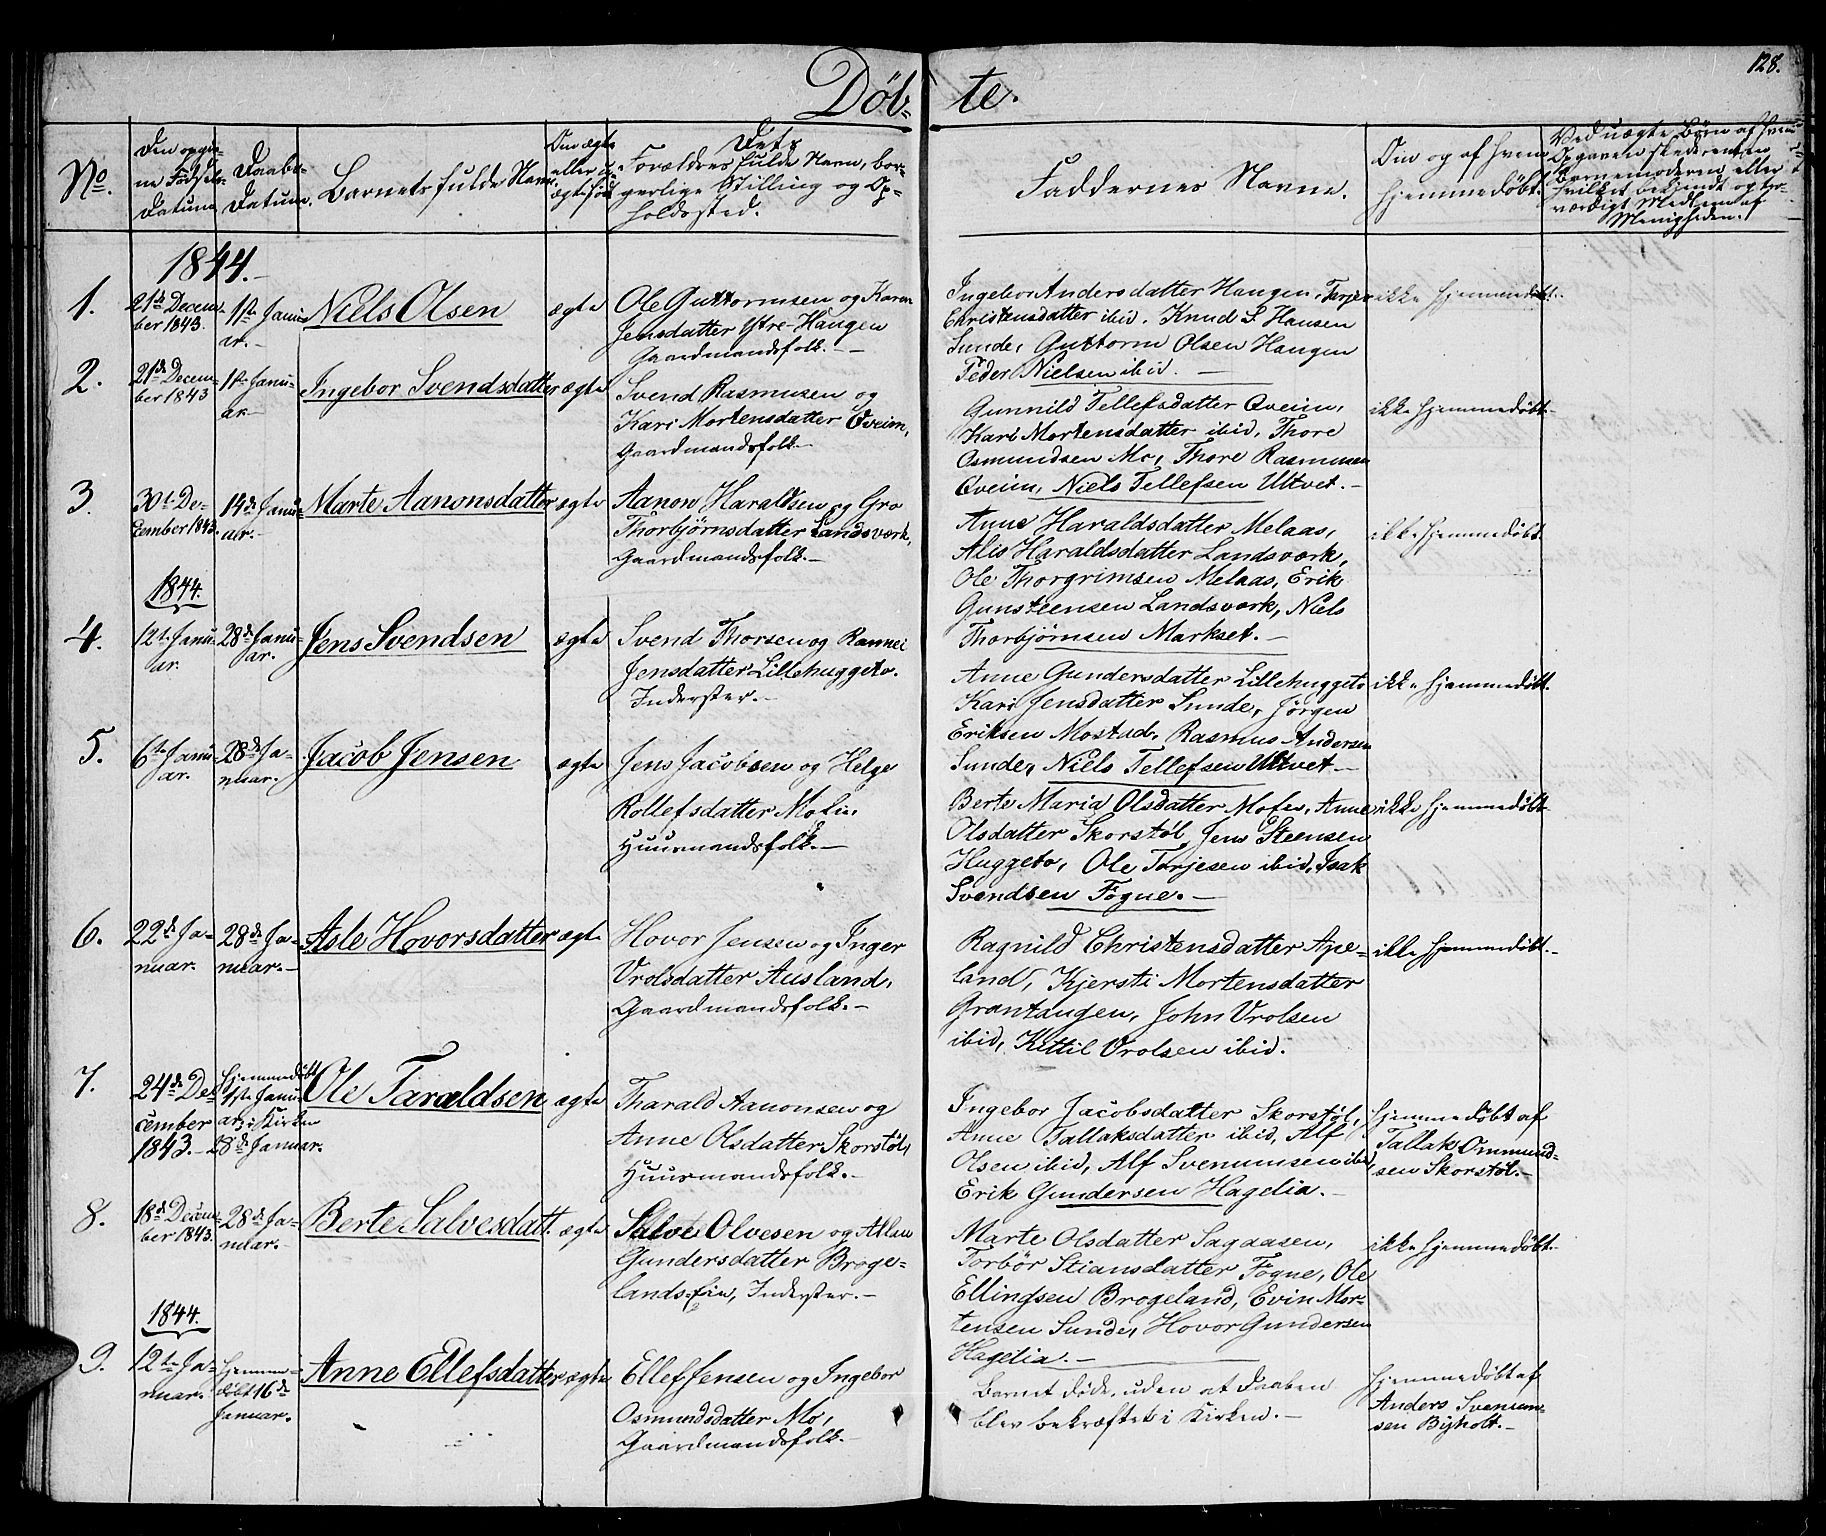 128.
Døb-
te.
No.
Den opgiv-
ne Fødsels-
Datum.
Daabs-
Datum.
Barnets fulde Navn.
Om ægte
eller u-
ægte fød
Dets
Forældres fulde Navn, bor-
gerlige Stilling og Op-
holdssted.
Faddernes Navne.
Om og af hvem
hjemmedøbt.
Ved uægte Børn af hvem
Opgaven skede, enten
Barnemoderen eller
hvilket bekjendt og tro-
værdigt Medlem af
Menigheden.
1844.-
1.
21de Decem-
ber 1843.
1ste Janu-
ar.-
Niels Olsen
ægte
Ole Guttormsen og Karen
Jensdatter Ytre-Haugen
Gaardmandsfolk.-
Ingebor Andersdatter Haugen, Terjer
Christensdatter ibid. Knud S. Hansen
Sunde, Guttorm Olsen Haugen
Peder Nielsen ibid.-
ikke hjemmedøbt.
2.
21de Decem-
ber 1843
1ste Janu-
ar-
Ingebor Svendsdatter
ægte
Svend Rasmusen og
Kari Mortensdatter Qveim,
Gaardmandsfolk.
Gunnild Tellefsdatter Qveim,
Kari Mortensdatter ibid, Thore
Osmundsen Mo, Thore Rasmusen
Qveim, Niels Tellefsen Ultvet.-
ikke hjemmedøbt.
3.
30te De-
cember 1843.
14de Janu-
ar.-
Marte Aanonsdatter
ægte
Aanon Haraldsen og Gro
Thorbjørnsdatter Landsværk,
Gaardmandsfolk.-
Anne Haraldsdatter Melaas,
Alis Haraldsdatter Landsværk,
Ole Thorgrimsen Melaas, Erik
Gunsteensen Landsværk, Niels
Thorbjørnsen Markset.-
ikke hjemmedøbt
1844.
4.
12te Janu-
ar.
28de Janu-
ar.
Jens Svendsen
ægte
Svend Thorsen og Rannei
Jensdatter Lillehuggeto.
Inderster.-
Anne Gundersdatter Lillehuggeto
Kari Jensdatter Sunde, Jörgen
Eriksen Mostad, Rasmus Andersen
Sunde, Niels Tellefsen Ultvet-
ikke hjemmedøbt.
5.
6te Janu-
ar.
28de Ja-
nuar.
Jacob Jensen
ægte
Jens Jacobsen og Helge
Rollefsdatter Molin,
Huusmandsfolk.-
Berte Maria Olsdatter Mofee, Anne
Olsdatter Skorstøl, Jens Steensen
Huggeto, Ole Terjesen ibid, Isak
Svendsen Fogne.-
ikke hjemmedøbt
6.
22de Ja-
nuar.
28de Ja-
nuar.-
Asle Hovorsdatter
ægte
Hovor Jensen og Inger
Vrolsdatter Ausland,
Gaardmandsfolk.-
Ragnild Christensdatter Ape-
land, Kjersti Mortensdatter
Grantangen, John Vrolsen
ibid, Kettil Vrolsen ibid.
ikke hjemmedøbt.-
7.
24de De-
cember
1843.-
Hjemmedøbt
1ste Janu-
ar, i Kirken
28de Januar.
Ole Taraldsen
ægte
Tharald Aanonsen og
Anne Olsdatter Skorstøl,
Huusmandsfolk.-
Ingebor Jacobsdatter Skorstøl,
Anne Tallaksdatter ibid, Alf
Olsen ibid, Alf Svenumsen ibid,
Erik Gundersen Hagelia.-
hjemmedøbt af
Tallak Ommund-
sen Skorstøl.-
8.
18de Decem-
ber 1843.
28de Ja-
nuar.-
Berte Salvesdatt.
ægte
Salve Olvesen og Aslau
Gundersdatter Broge-
landsEie, Inderster.-
Marte Olsdatter Sagaasen,
Torbör Stiansdatter Fogne, Ole
Ellingsen Brogeland, Evin Mor-
tensen Sunde, Hovor Gundersen
Hagelia.-
ikke hjemmedøbt.-
1844.
9.
12te Ja-
nuar.
hjemme-
døbt 16de
Januar.
Anne Ellefsdatter
ægte
Ellef Jensen og Ingebor
Osmundsdatter Mo,
Gaardmandsfolk.-
Barnet døde, uden at Daaben
blev bekræftet i Kirken.-
hjemmedøbt af
Anders Svenum-
sen Byholt.-